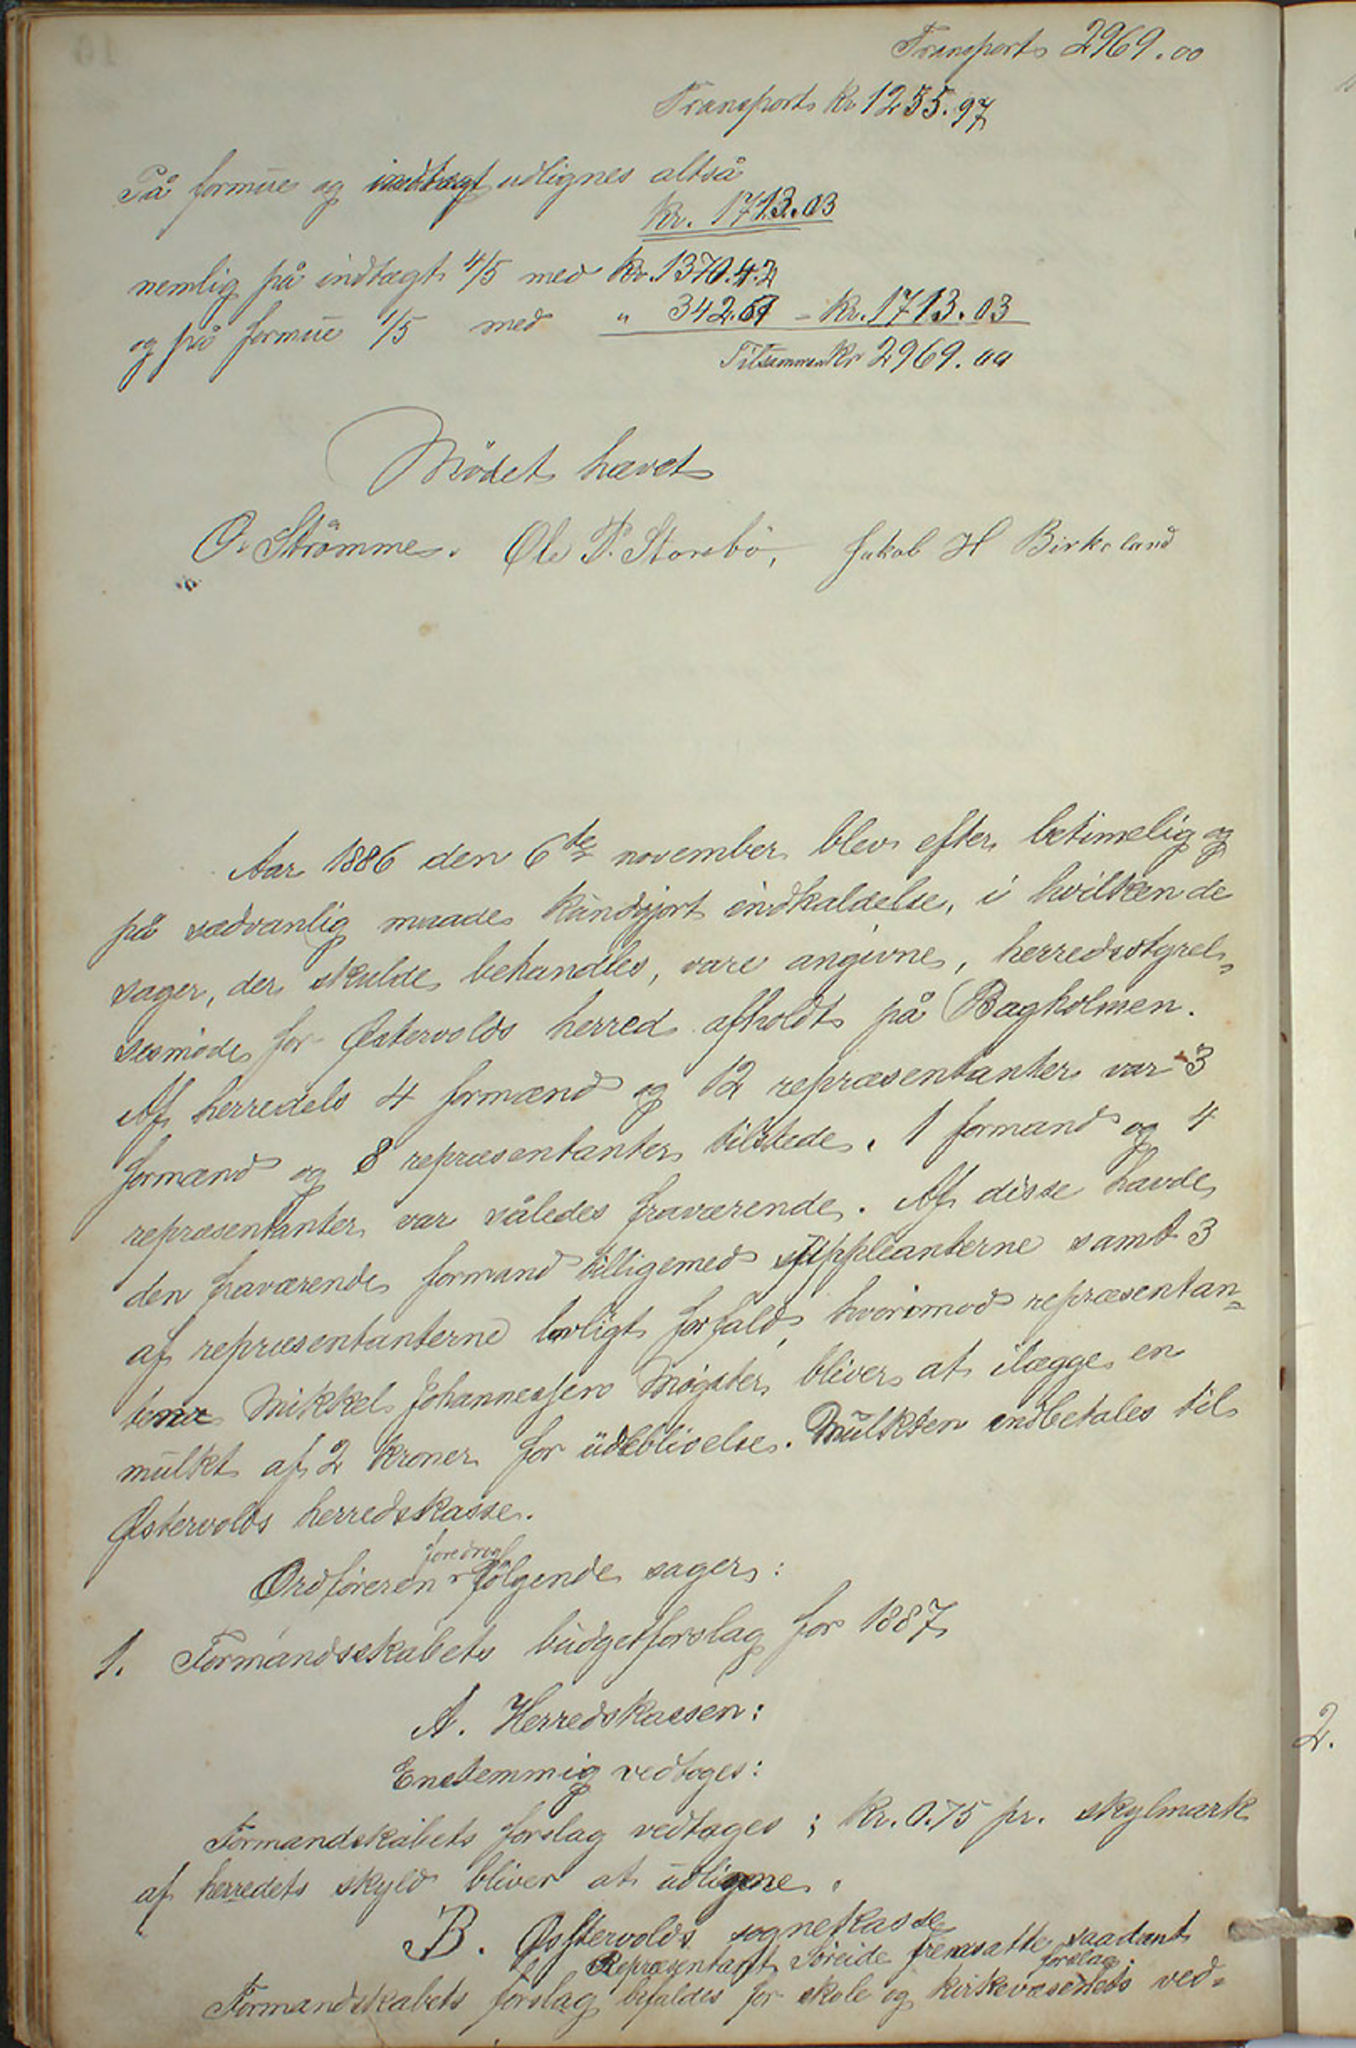 Transport 2969.00
Transport kr 1255.97
På formue og indtægt udlignes altså
kr. 1713.03
nemlig på indtægt 4/5 med kr. 1370.42
og på formue 1/5 med " 342.61 - kr. 1713.03
Tilsammen kr 2969.00
Mödet hævet
O. Strömme. Ole P. Storebö, Jakob H Birkeland
Aar 1886 den 6te november blev efter betimelig og
på sædvanlig maade kundgjort indkaldelse, i hvilken de
sager, der skulde behandles, vare angivne, herredsstyrel-
sesmöde for Östervolds herred afholdt på Bagholmen.
Af herredets 4 formænd og 12 repræsentanter var 3
formænd og 8 repræsentanter tilstede. 1 formand og 4
repræsentanter var således fraværende. Af disse havde
den fraværende formand tilligemed suppleanterne samt 3
af repræsentanterne lovligt forfald, hvorimod repræsentan-
terne Mikkel Johannessen Møgster bliver at ilægge en
mulkt af 2 kroner for udeblivelse. Mulkten indbetales til
Østervolds herredskasse.
foredrog
Ordföreren følgende sager:
1. Formandsskabets budgetforslag for 1887
A. Herredskassen:
Enstemmig vedtoges:
Formandskabets forslag vedtages; kr. 0.75 pr. skylmark
af herredets skyld bliver at udligne.
B. Østervolds sognekasse
Repræsentant Söreide fremsatte saadant
forslag:
Formandskabets forslag bifaldes for skole og kirkevæsenets ved-
2.